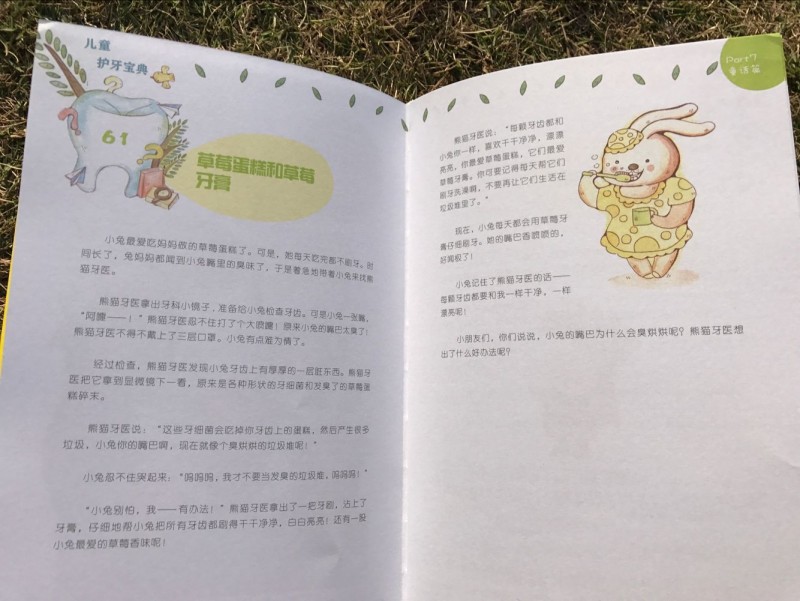 儿童
护牙宝典
61
草莓蛋糕和草莓
牙膏
小兔最爱吃妈妈做的草莓蛋糕了。可是，她每天吃完都不刷牙。时
间长了，兔妈妈都闻到小兔嘴里的臭味了，于是着急地带着小兔来找熊
猫牙医。
熊猫牙医拿出牙科小镜子，准备给小兔检查牙齿。可是小兔一张嘴，
“阿嚏——！”熊猫牙医忍不住打了个大喷嚏！原来小兔的嘴巴太臭了！
熊猫牙医不得不戴上了三层口罩。小兔有点难为情了。
经过检查，熊猫牙医发现小兔牙齿上有厚厚的一层脏东西。熊猫牙
医把它拿到显微镜下一看，原来是各种形状的牙细菌和发臭了的草莓蛋
糕碎末。
熊猫牙医说：“这些牙细菌会吃掉你牙齿上的蛋糕，然后产生很多
垃圾，小兔你的嘴巴啊，现在就像个臭烘烘的垃圾堆呢！”
小兔忍不住哭起来：“呜呜呜，我才不要当发臭的垃圾堆，呜呜呜！”
“小兔别怕，我——有办法！”熊猫牙医拿出了一把牙刷，沾上了
牙膏，仔细地帮小兔把所有牙齿都刷得干干净净，白白亮亮！还有一股
小兔最爱的草莓香味呢！
Part7
童话篇
熊猫牙医说：“每颗牙齿都和
小兔你一样，喜欢干干净净，漂漂
亮亮，你最爱草莓蛋糕，它们最爱
草莓牙膏。你可要记得每天帮它们
刷牙洗澡啊，不要再让它们生活在
垃圾堆里了。”
现在，小兔每天都会用草莓牙
膏仔细刷牙。她的嘴巴香喷喷的，
好闻极了！
小兔记住了熊猫牙医的话——
每颗牙齿都要和我一样干净，一样
漂亮呢！
小朋友们，你们说说，小兔的嘴巴为什么会臭烘烘呢？熊猫牙医想
出了什么好办法呢？